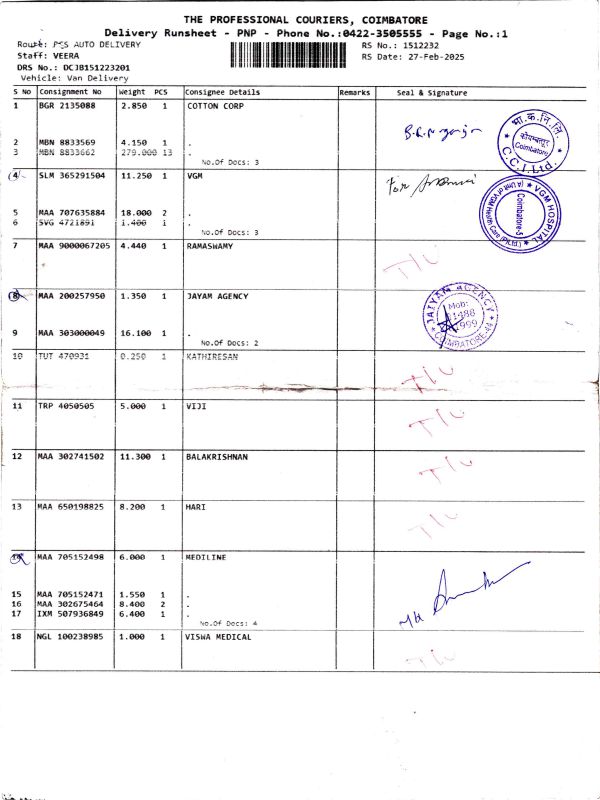 THE PROFESSIONAL COURIERS, COIMBATORE
Delivery Runsheet - PNP - Phone No.:0422-3505555 - Page No.:1
Route: PCS AUTO DELIVERY
RS No.: 1512232
Staff: VEERA
RS Date: 27-Feb-2025
DRS No.: DCJB151223201
Vehicle: Van Delivery
S No Consignment No Weight PCS Consignee Details Remarks Seal & Signature
1 BGR 2135088 2.850 1 COTTON CORP
2 MBN 8833569 4.150 1 .
3 MBN 8833662 279.000 13 .
No.Of Docs: 3
भा.क.नि.लि.
कोयम्बत्तूर
Coimbatore
C.C.I.Ltd.
4 SLM 365291504 11.250 1 VGM
For
5 MAA 707635884 18.000 2 .
6 SVG 4721891 1.400 1 .
No.Of Docs: 3
VGM HOSPITAL
(A Unit of VGM Health Care (P)Ltd.)
Coimbatore-5
7 MAA 9000067205 4.440 1 RAMASWAMY
8 MAA 200257950 1.350 1 JAYAM AGENCY
9 MAA 303000049 16.100 1 .
No.Of Docs: 2
JAIYAM AGENCY
Mob:
COIMBATORE-44
10 TUT 470931 0.250 1 KATHIRESAN
11 TRP 4050505 5.000 1 VIJI
12 MAA 302741502 11.300 1 BALAKRISHNAN
13 MAA 650198825 8.200 1 HARI
14 MAA 705152498 6.000 1 MEDILINE
15 MAA 705152471 1.550 1 .
16 MAA 302675464 8.400 2 .
17 IXM 507936849 6.400 1 .
No.Of Docs: 4
18 NGL 100238985 1.000 1 VISWA MEDICAL